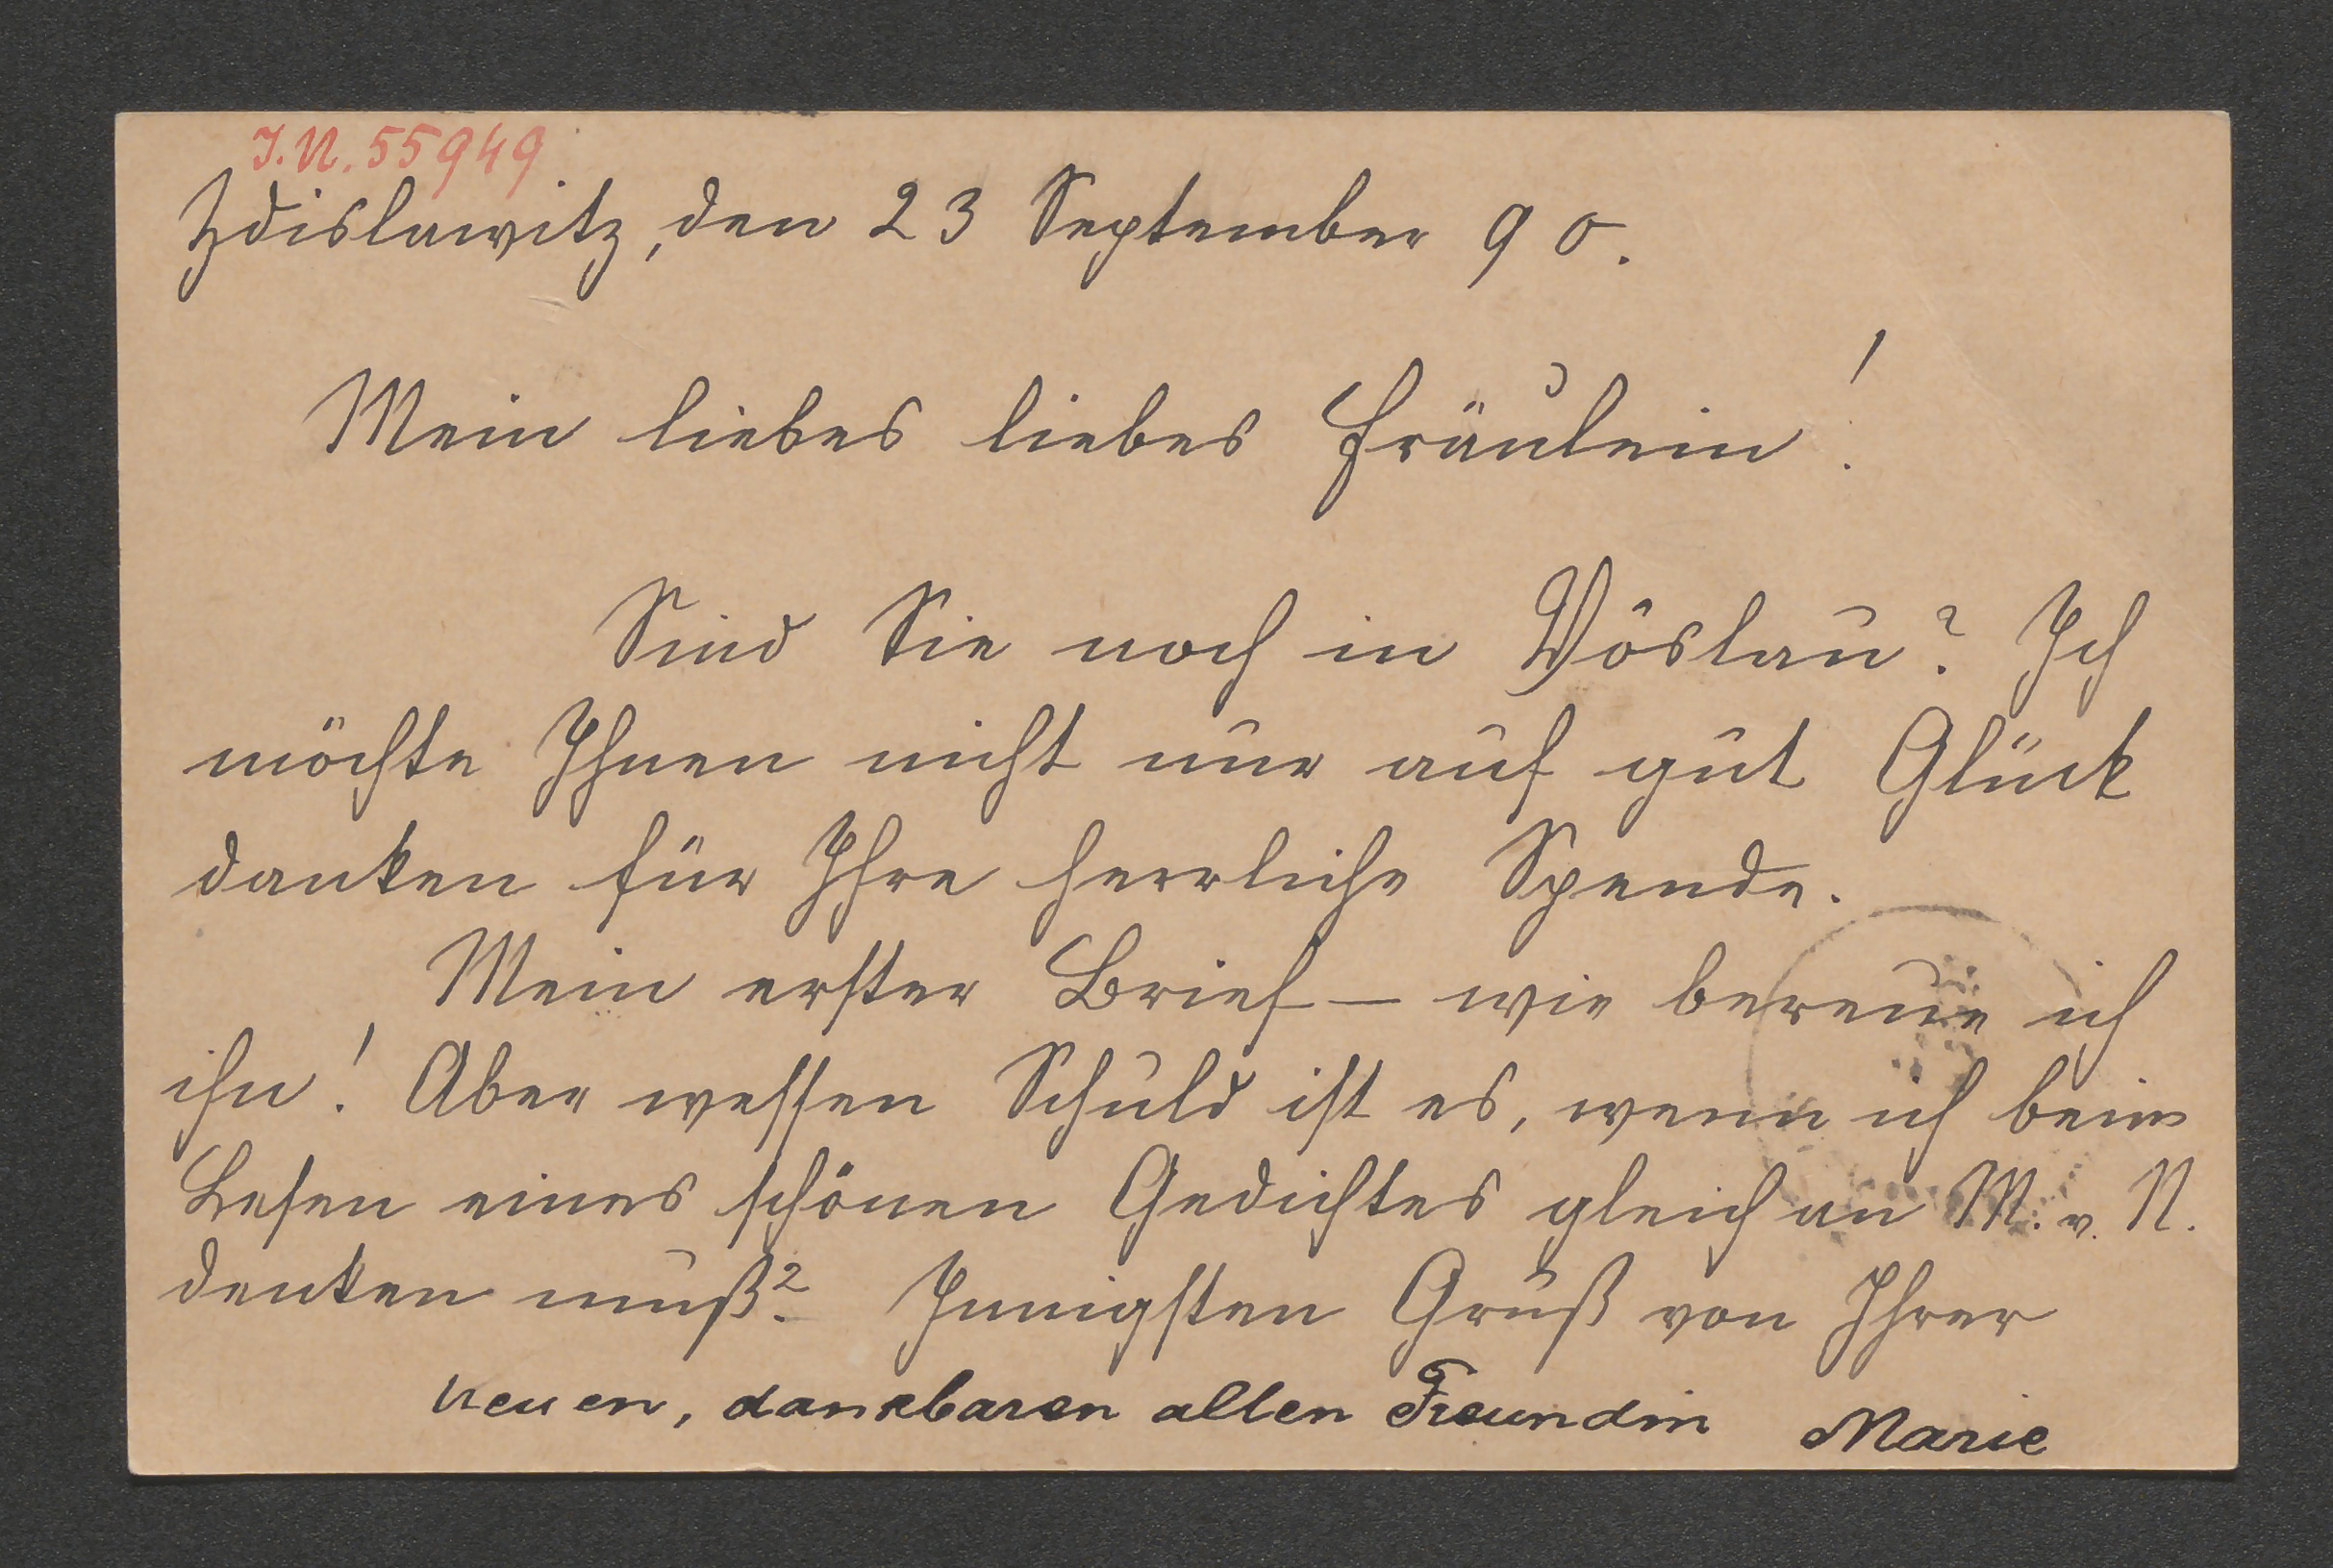 I.N. 55949
Zdislawitz, den 23 September 90.
Mein liebes liebes Fräulein!
Sind Sie noch in Vöslau? Ich
möchte Ihnen nicht nur auf gut Glück
danken für Ihre herrliche Spende.
Mein erster Brief – wie bereue ich
ihn! Aber wessen Schuld ist es, wenn ich beim
Lesen eines schönen Gedichtes gleich an M. v. N.
denken muß? Innigsten Gruß von Ihrer
treuen, dankbaren alten Freundin Marie